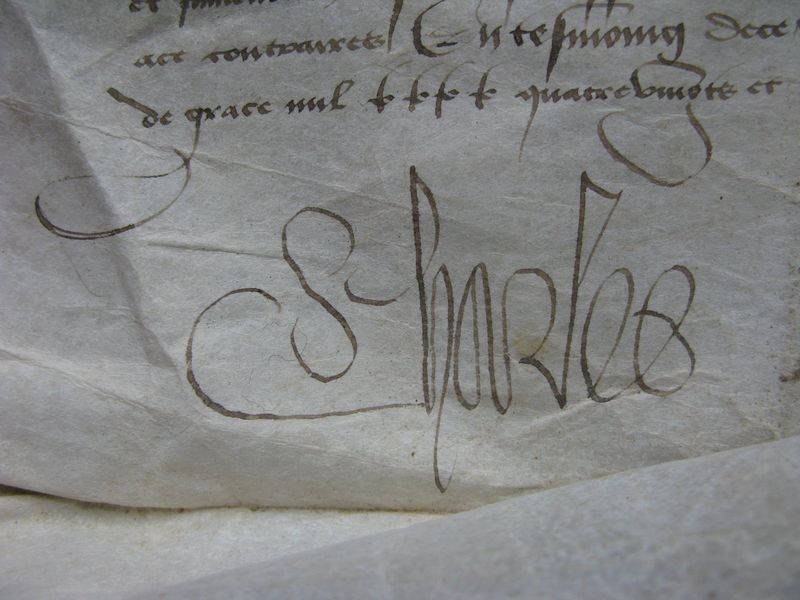 ace contraires En tesmoing dece
de grace mil quatrevings et
Charles